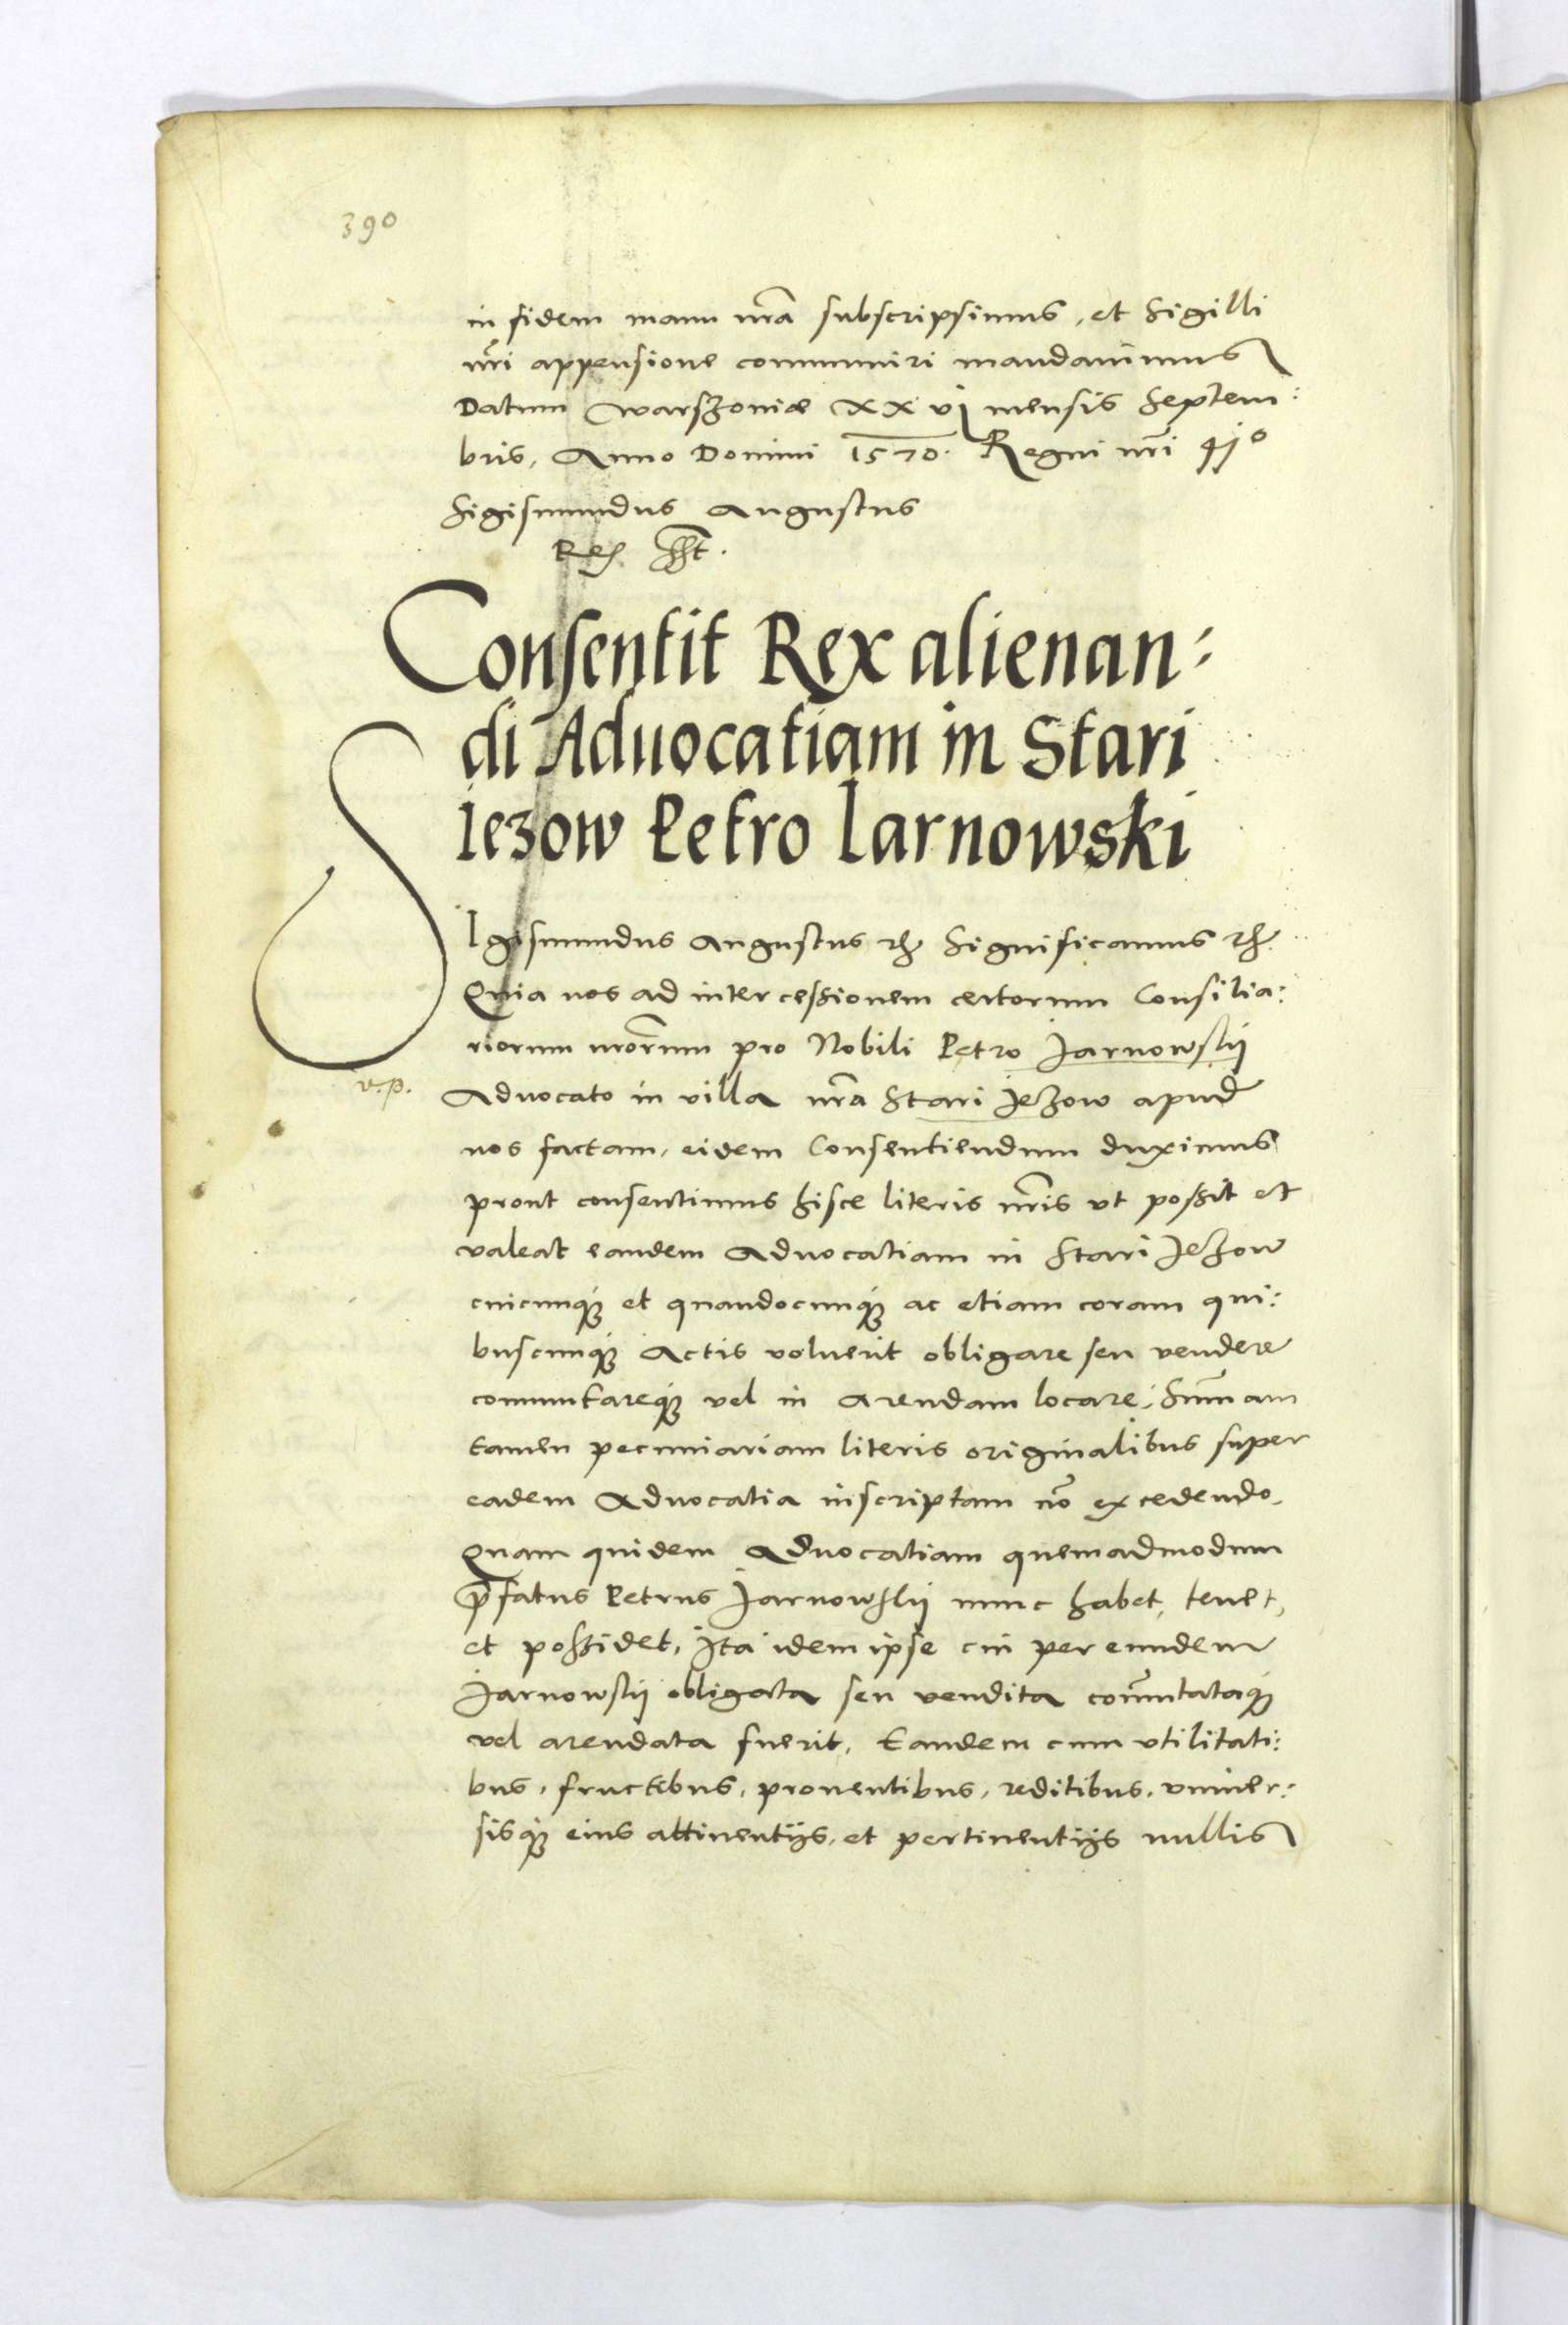 390
in fidem manu nrã subscripsimus, et Sigilli
nr̃i appensione communiri mandavimus
Datum Warszoviæ XXvj mensis Septem:
bris, Anno Domini 1570. Regni nr̃i 41º
Sigismundus Augustus
Rex sst.
Consentit Rex alienan:
di Aduocatiam in Stari
Iezow Petro Iarnowski
SIgismundus Augustus etc. Significamus etc.
Quia nos ad intercessionem certorum Consilia:
riorum nrorum pro Nobili Petro Jarnowskij
v.p.
Aduocato in villa nrã Stari Jezow apud
nos factam, eidem Consentiendum duximus
prout consentimus hisce literis nr̃is vt possit et
valeat eandem Aduocatiam in Stari Jezow
cuicunq; et quandocunq; ac etiam coram qui:
buscunq; Actis voluerit obligare seu vendere
commutareq; vel in arendam locare, Sum̃am
tamen pecuniariam literis originalibus super
eadem Aduocatia inscriptam nõ excedendo.
Quam quidem Aduocatiam quemadmodum
p̃fatus Petrus Jarnowskij nunc habet, tenet,
et possidet, Ita idem ipse cui per eundem
Jarnowskij obligata seu vendita com̃utataq;
vel arendata fuerit, Eandem cum vtilitati:
bus, fructibus, prouentibus, reditibus, vniuer:
sisq; eius attinentijs, et pertinentijs nullis